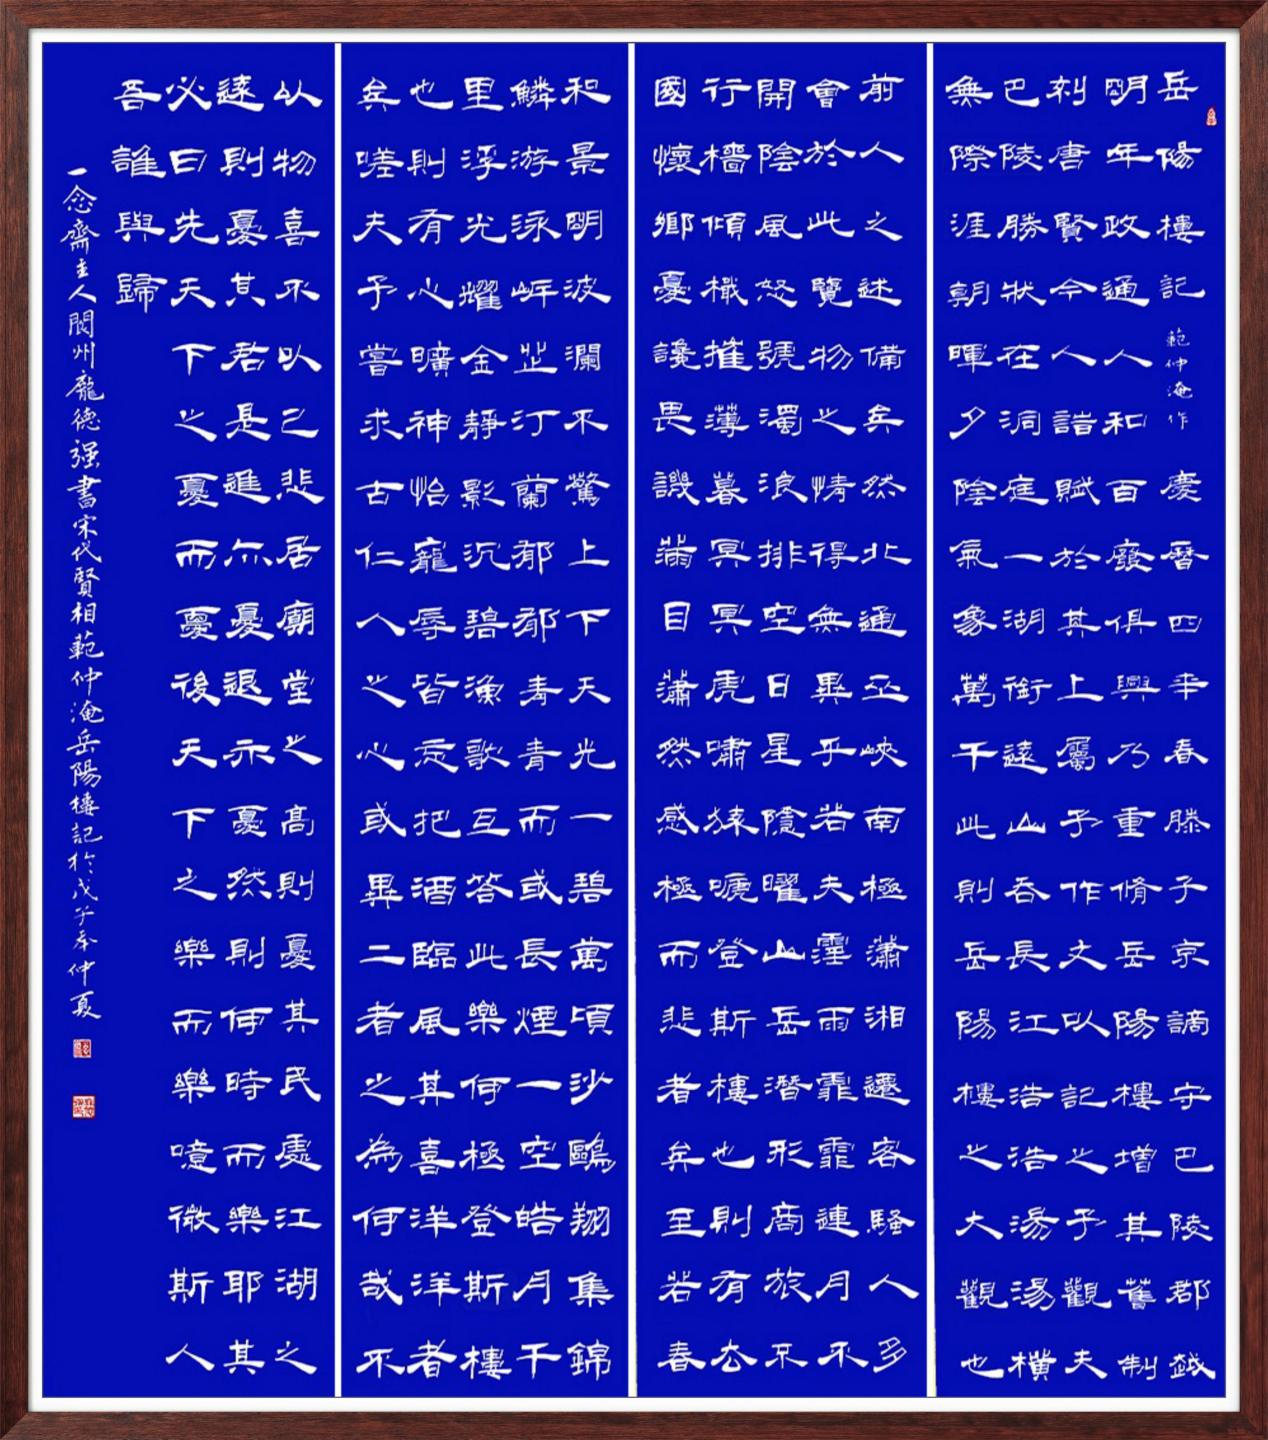 岳陽樓記 範仲淹作 慶曆四年春滕子京謫守巴陵郡越
明年政通人和百廢俱興乃重脩岳陽樓增其舊制
刻唐賢今人詩賦於其上屬予作文以記之予觀夫
巴陵勝狀在洞庭一湖銜遠山吞長江浩浩湯湯橫
無際涯朝暉夕陰氣象萬千此則岳陽樓之大觀也
前人之述備矣然北通巫峽南極瀟湘遷客騷人多
會於此覽物之情得無異乎若夫霪雨霏霏連月不
開陰風怒號濁浪排空日星隱曜山岳潛形商旅不
行檣傾檝摧薄暮冥冥虎嘯猿嗁登斯樓也則有去
國懷鄉憂讒畏譏滿目蕭然感極而悲者矣至若春
和景明波瀾不驚上下天光一碧萬頃沙鷗翔集錦
鱗游泳岸芷汀蘭郁郁青青而或長煙一空皓月千
里浮光耀金靜影沉碧漁歌互答此樂何極登斯樓
也則有心曠神怡寵辱皆忘把酒臨風其喜洋洋者
矣嗟夫予嘗求古仁人之心或異二者之為何哉不
以物喜不以己悲居廟堂之高則憂其民處江湖之
遠則憂其君是進亦憂退亦憂然則何時而樂耶其
必曰先天下之憂而憂後天下之樂而樂噫微斯人
吾誰與歸
一念齋主人閬州龐德强書宋代賢相範仲淹岳陽樓記於戊子年仲夏